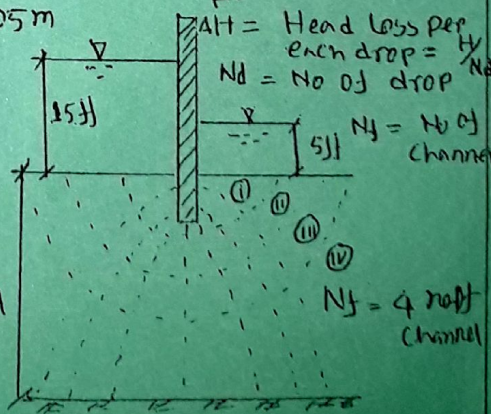 05 m
ΔH = Head Loss per
each drop = H/Nd
Nd = No of drop
15ft
5ft
Nf = No of
channel
I
II
III
IV
Nf = 4 no of
channel